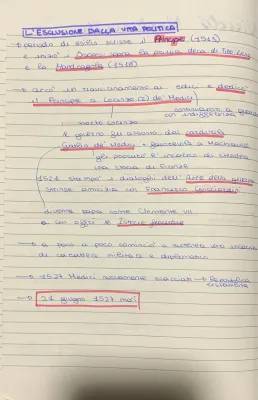 L'ESCLUSIONE DALLA VITA POLITICA
→ periodo di esilio scrisse il Principe (1513)
e iniziò i Discorsi sopra la prima deca di Tito Livio
e la Mandragola (1518)
→ cercò un riavvicinamento ai Medici e dedicò
il Principe a Lorenzo (2) de' Medici
continuarono a guardarlo
con indifferenza
morto Lorenzo
il governo fu assunto dal cardinale
Giulio de' Medici → Machiavelli
gli procurò l'incarico di
una storia di Firenze
1521 stampò i dialoghi dell'Arte della guerra
strinse amicizia con Francesco Guicciardini
divenne papa come Clemente VII
e con offrì le Istorie fiorentine
→ a poco a poco cominciò a ottenere incarichi
di carattere militare e diplomatico
→ 1527 Medici nuovamente scacciati → Repubblica
→ 21 giugno 1527 morì